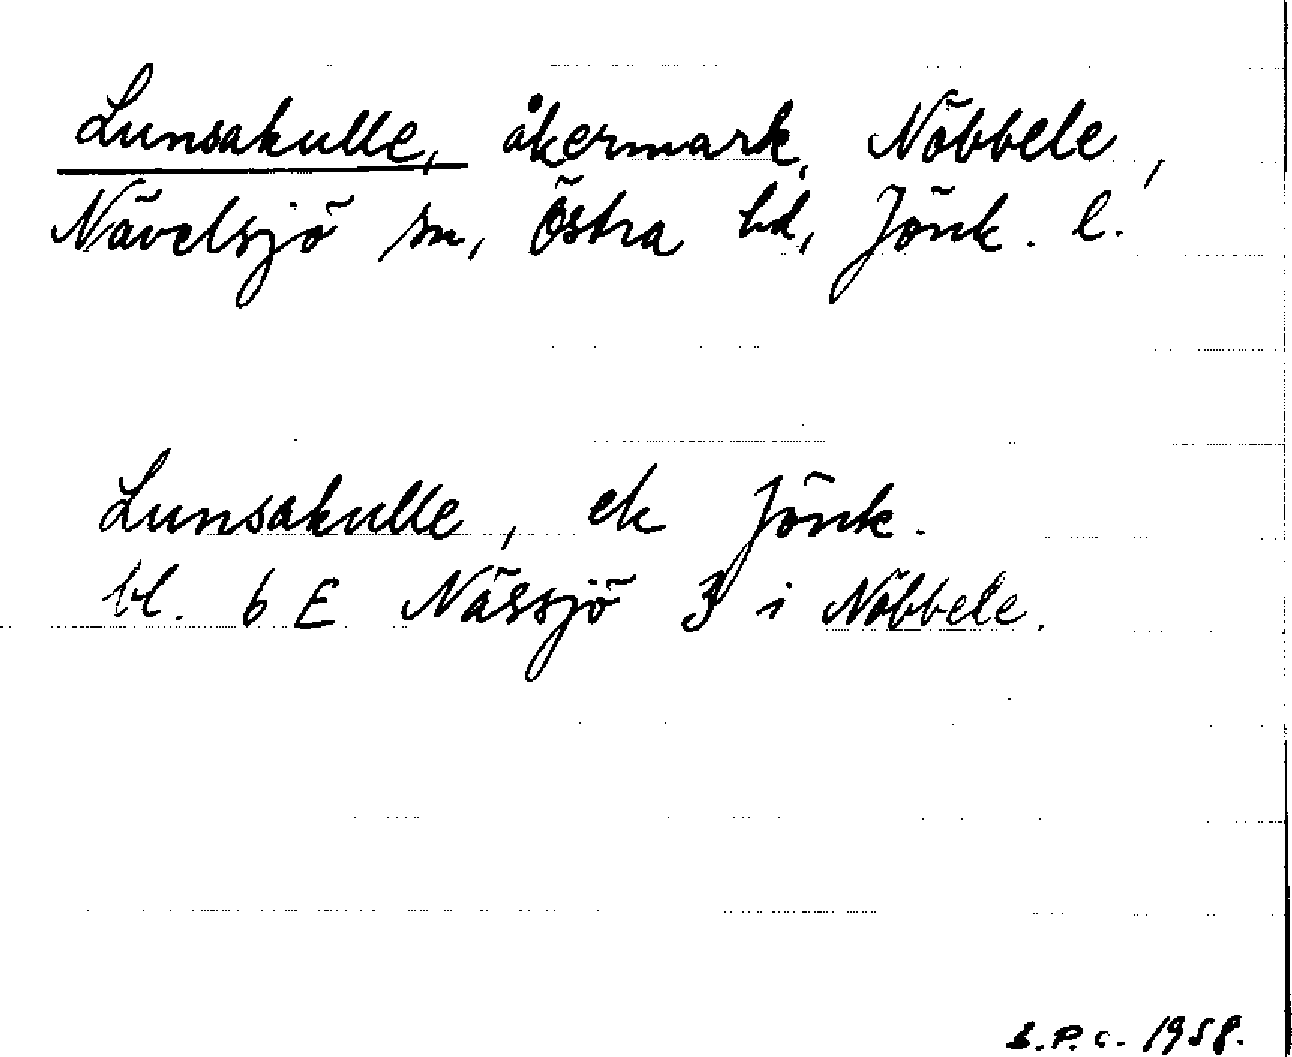 Lunsakulle, åkermark, Nöbbele,
Nävelsjö sn, Östra hd, Jönk. l.
Lunsakulle, ek Jönk.
bl. 6 E Nässjö 3 i Nöbbele.
S.P.C. 1958.